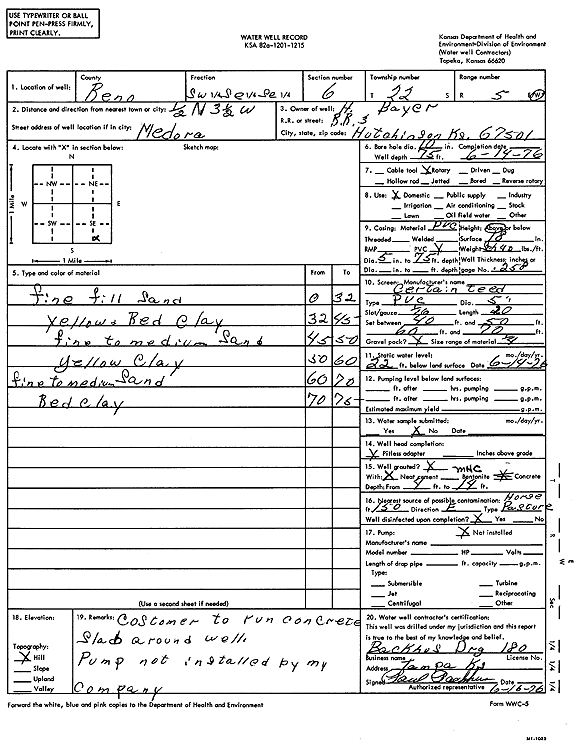 USE TYPEWRITER OR BALL
POINT PEN-PRESS FIRMLY,
PRINT CLEARLY.
WATER WELL RECORD
KSA 82a-1201-1215
Kansas Department of Health and
Environment-Division of Environment
(Water well Contractors)
Topeka, Kansas 66620
1. Location of well: County Reno Fraction SW¼SE¼SE¼ Section number 6 Township number T 22 S Range number R 5 E/W
2. Distance and direction from nearest town or city: ½ N 3½ W
Street address of well location if in city: Medora
3. Owner of well: H. Bayer
R.R. or street: R.R. 3
City, state, zip code: Hutchinson Ks. 67501
4. Locate with "X" in section below: Sketch map:
N
NW NE
W E
SW SE
X
S
1 Mile
1 Mile
6. Bore hole dia. 10 in. Completion date
Well depth 75 ft. 6-14-76
7. Cable tool X Rotary Driven Dug
Hollow rod Jetted Bored Reverse rotary
8. Use: X Domestic Public supply Industry
Irrigation Air conditioning Stock
Lawn Oil field water Other
9. Casing: Material PVC Height: Above or below
Threaded Welded Surface 18 in.
RMP PVC X Weight lbs./ft.
Dia. 5 in. to 75 ft. depth Wall Thickness: inches or
Dia. in. to ft. depth gage No. .258
5. Type and color of material From To
fine fill Sand 0 32
Yellow & Red Clay 32 45
fine to medium Sand 45 50
Yellow Clay 50 60
fine to medium Sand 60 70
Red Clay 70 75
(Use a second sheet if needed)
10. Screen: Manufacturer's name
Certain teed
Type PVC Dia. 5"
Slot/gauge Length 20
Set between 40 ft. and 50 ft.
60 ft. and 70 ft.
Gravel pack? X Size range of material
11. Static water level: mo./day/yr.
22 ft. below land surface Date 6-14-76
12. Pumping level below land surfaces:
ft. after hrs. pumping g.p.m.
ft. after hrs. pumping g.p.m.
Estimated maximum yield g.p.m.
13. Water sample submitted: mo./day/yr.
Yes X No Date
14. Well head completion:
X Pitless adapter Inches above grade
15. Well grouted? X MHC
With: X Neat cement Bentonite X Concrete
Depth: From 4 ft. to 14 ft.
16. Nearest source of possible contamination: Horse
ft. 150 Direction E Type Pasture
Well disinfected upon completion? X Yes No
17. Pump: X Not installed
Manufacturer's name
Model number HP Volts
Length of drop pipe ft. capacity g.p.m.
Type:
Submersible Turbine
Jet Reciprocating
Centrifugal Other
18. Elevation:
Topography:
X Hill
Slope
Upland
Valley
19. Remarks: Costomer to run concrete
Slab around well
Pump not installed by my
Company
20. Water well contractor's certification:
This well was drilled under my jurisdiction and this report
is true to the best of my knowledge and belief.
Backhus Drg 180
Business name License No.
Address Tampa Ks
Signed Paul Backhus Date 6-16-76
Authorized representative
Forward the white, blue and pink copies to the Department of Health and Environment
Form WWC-5
T
R
W E
Sec
¼
¼
¼